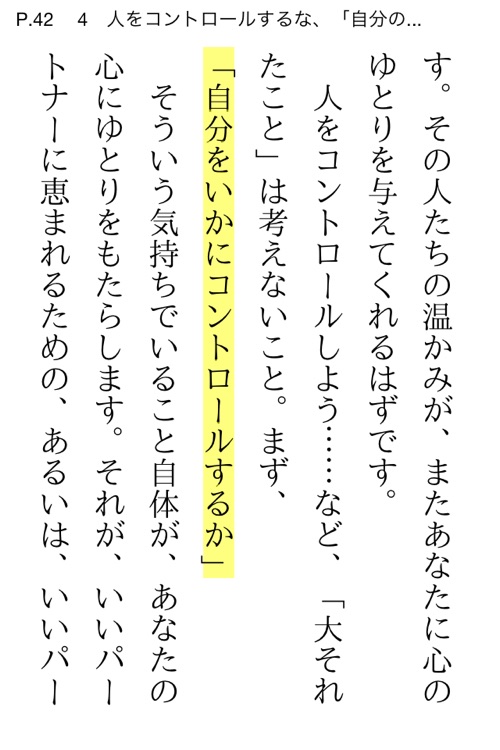 P.42　4　人をコントロールするな、「自分の...
す。その人たちの温かみが、またあなたに心の
ゆとりを与えてくれるはずです。
　人をコントロールしよう……など、「大それ
たこと」は考えないこと。まず、
「自分をいかにコントロールするか」
　そういう気持ちでいること自体が、あなたの
心にゆとりをもたらします。それが、いいパー
トナーに恵まれるための、あるいは、いいパー